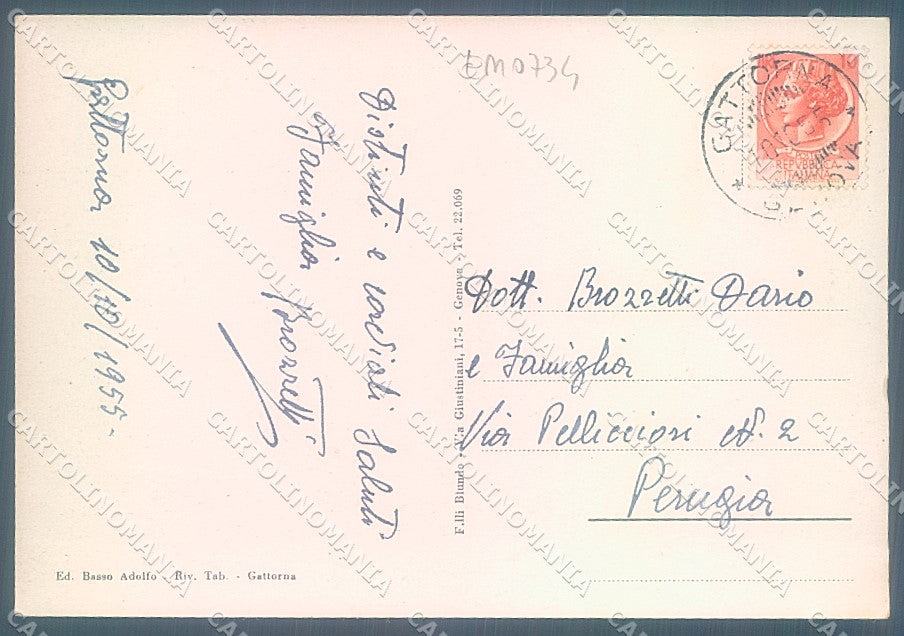 EM0734
Gattorna 10/10/1955-
Distinti e cordiali saluti
Famiglia Brozzetti
F.lli Biundo - Via Giustiniani, 17-5 - Genova - Tel. 22.069
GATTORNA
GENOVA
REPUBBLICA
ITALIANA
Dott. Brozzetti Dario
e Famiglia
Via Pellicciari N. 2
Perugia
Ed. Basso Adolfo - Riv. Tab. - Gattorna
CARTOLINOMANIA